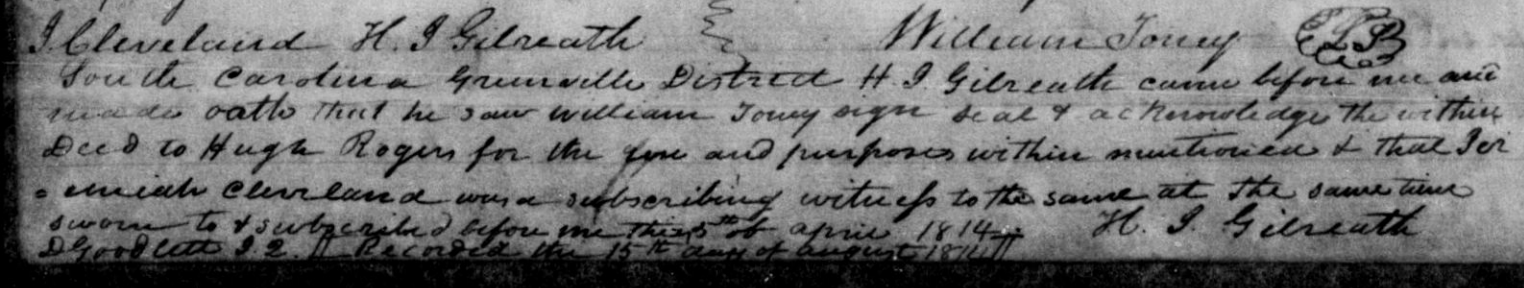 J. Cleveland H. J Gilreath William Toney LS
South Carolina Greenville District H. J. Gilreath came before me and
made oath that he saw William Toney sign seal & acknowledge the within
Deed to Hugh Rogers for the and purposes within mentioned & that Jer
= emiah Cleveland was a subscribing witness to the same at the same time
sworn to & subscribed before me this 5th of april 1814 H. J. Gilreath
D Goodlett J. Q. Recorded the 15th day of august 1814